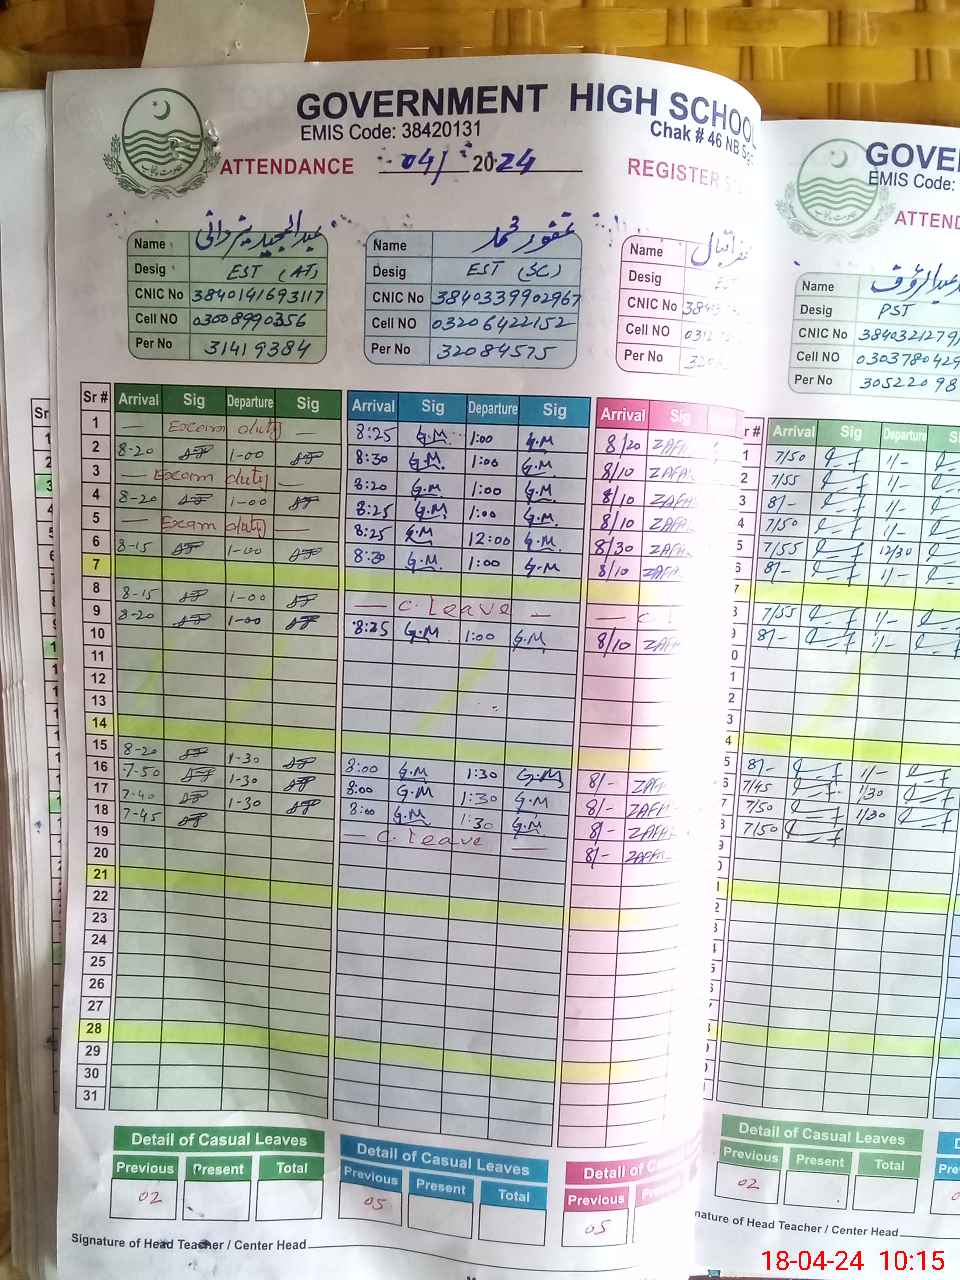 GOVERNMENT HIGH SCHOOL
EMIS Code: 38420131
Chak # 46 NB
ATTENDANCE 04/ 2024 REGISTER
Name عبدالمجید یزدانی
Desig EST (AT)
CNIC No 3840141693117
Cell NO 03008990356
Per No 31419384
Name غفور محمد
Desig EST (SC)
CNIC No 3840339902967
Cell NO 03206422152
Per No 32084575
Name اقبال
Desig
CNIC No
Cell NO
Per No
Sr # Arrival Sig Departure Sig Arrival Sig Departure Sig Arrival Sig
1 — Exam duty 8:25 G.M 1:00 G.M 8/20 ZAFA
2 8-20 1-00 8:30 G.M 1:00 G.M 8/10 ZAFA
3 — Exam duty — 8:20 G.M 1:00 G.M 8/10 ZAFA
4 8-20 1-00 8:25 G.M 1:00 G.M 8/10 ZAFA
5 — Exam duty — 8:25 G.M 12:00 G.M 8/30 ZAFA
6 8-15 1-00 8:30 G.M 1:00 G.M 8/10 ZAFA
7
8 8-15 1-00 — C.Leave —
9 8-20 1-00 8:25 G.M 1:00 G.M 8/10 ZAFA
10
11
12
13
14
15 8-20 1-30 8:00 G.M 1:30 G.M 8/- ZAFA
16 7-50 1-30 8:00 G.M 1:30 G.M 8/- ZAFA
17 7-40 1-30 8:00 G.M 1:30 G.M 8/- ZAFA
18 7-45 — C leave — 8/- ZAFA
19
20
21
22
23
24
25
26
27
28
29
30
31
Detail of Casual Leaves
Previous Present Total
02
Detail of Casual Leaves
Previous Present Total
05
Detail of Ca
Previous
05
Signature of Head Teacher / Center Head
GOVE
EMIS Code:
ATTEND
Name عبدالرؤف
Desig PST
CNIC No 384032127
Cell NO 030378042
Per No 30522098
Arrival Sig Departure
1 7/50 1/-
2 7/55 1/-
3 8/- 1/-
4 7/50 1/-
5 7/55 12/30
6 8/- 1/-
7
8 7/55 1/-
9 8/- 1/-
8/- 1/-
7/45 1/30
7/50 1/30
7/50
Detail of Casual Leaves
Previous Present Total
02
nature of Head Teacher / Center Head
18-04-24 10:15